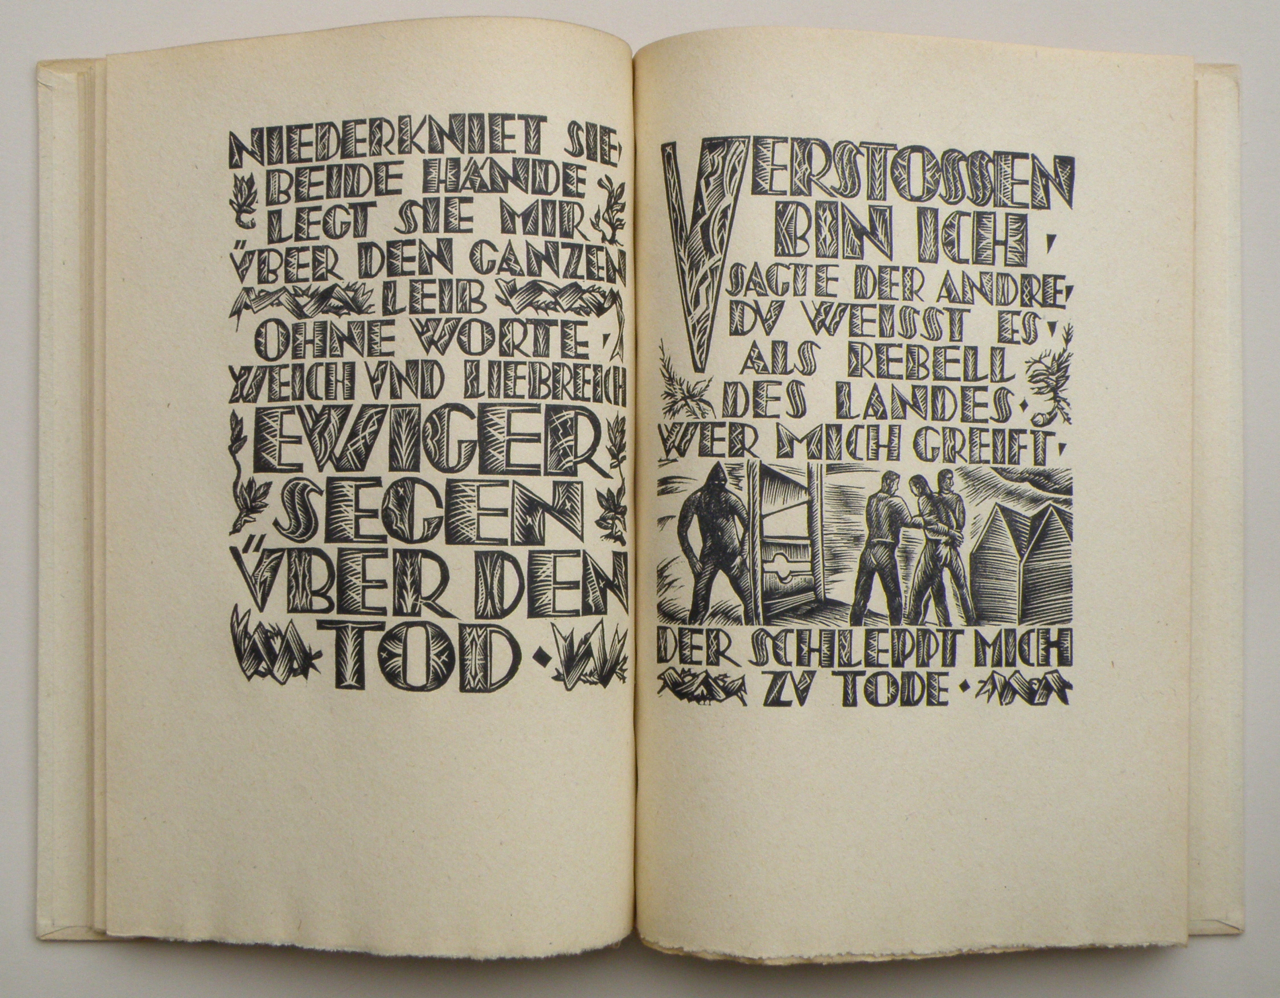 NIEDERKNIET SIE,
BEIDE HÄNDE
LEGT SIE MIR
ÜBER DEN GANZEN
LEIB
OHNE WORTE,
WEICH VND LIEBREICH
EWIGER
SEGEN
ÜBER DEN
TOD.
VERSTOSSEN
BIN ICH,
SAGTE DER ANDRE,
DV WEISST ES,
ALS REBELL
DES LANDES.
WER MICH GREIFT,
DER SCHLEPPT MICH
ZV TODE.